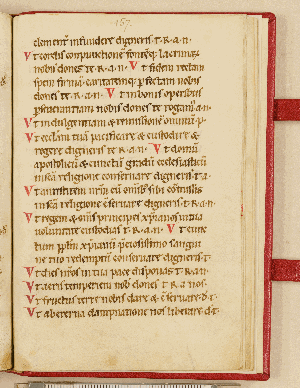 157
clementer infundere digneris t. r. a. n.
Vt cordis compunctionem fontemque lacrimarum
nobis dones te. r. a. n. Vt fidem rectam
spem firmam caritatemque perfectam nobis
dones te. r. a. n. Vt in bonis operibus
perseverantiam nobis dones te rogamus a. n.
Vt indulgentiam & remissionem omnium p.
Vt ecclesiam tuam pacificare & custodire &
regere digneris te. r. a. n. Vt domnum
apostolicum & cunctum gradum ecclesiasticum
in sancta religione conservare digneris. t. a.
Vt antistitem nostrum cum omnibus sibi commissis
in sancta religione conservare digneris t. r. a. n.
Vt regem & omnes principes xpianos in tua
voluntate custodias t. r. a. n. Vt cunc
tum populum xpianum preciosissimo sangui
ne tuo redemptum conservare digneris. t.
Vt dies nostros in tua pace disponas t. r. a. n.
Vt aeris temperiem nobis dones t. r. a. nos.
Vt fructus terre nobis dare & conservare. d. t.
Vt ab eterna dampnatione nos liberare. d. t.